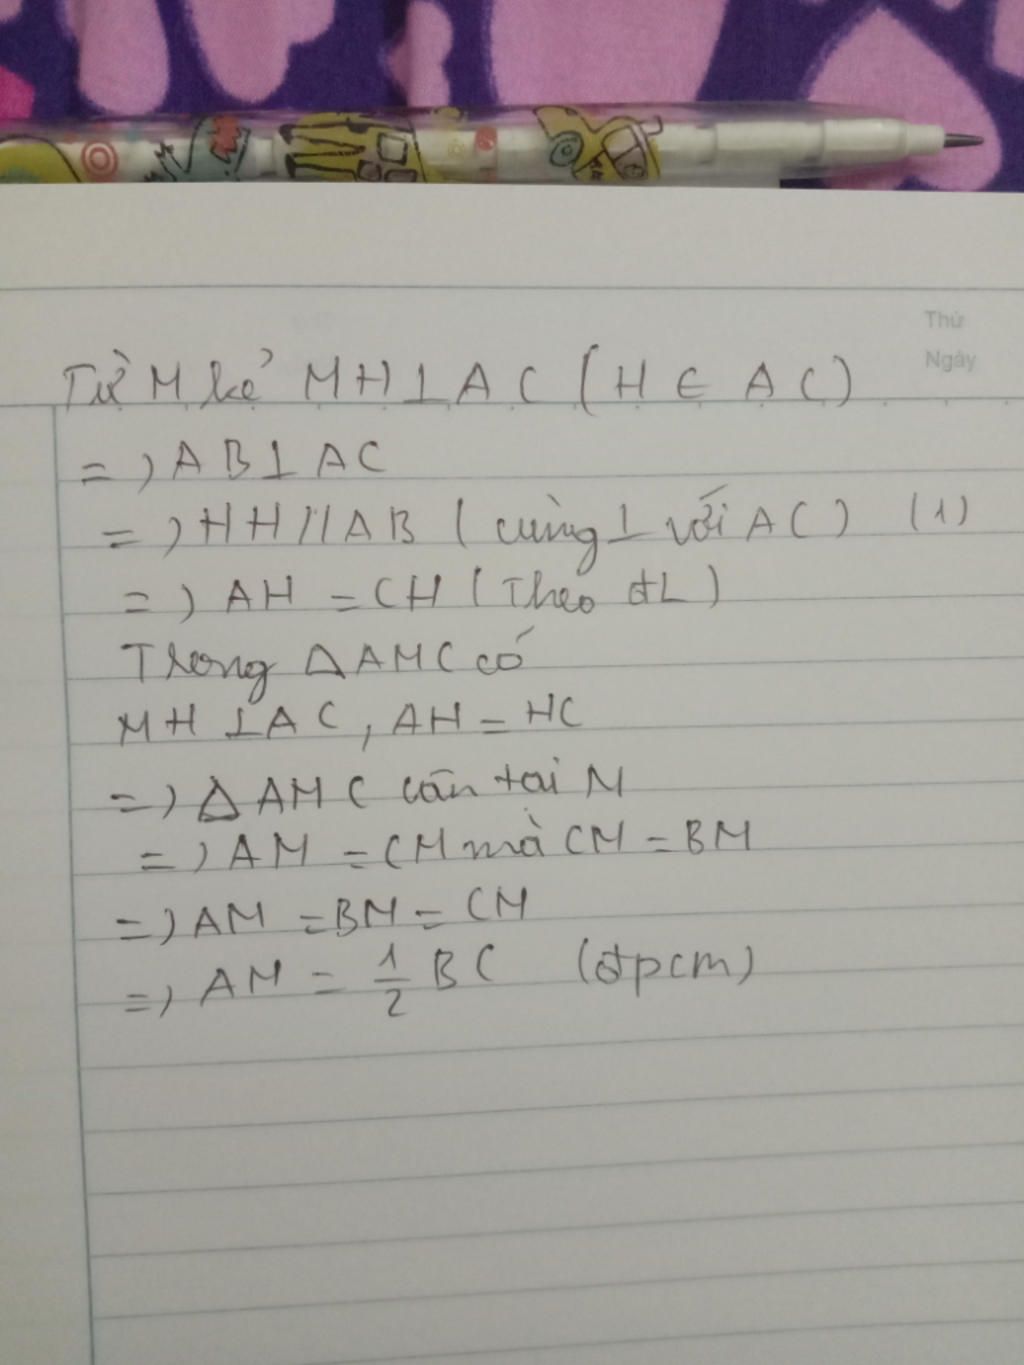 Thứ
Ngày
Từ M kẻ MH⊥AC (H ∈ AC)
=) AB⊥AC
=) HH//AB (cùng ⊥ với AC) (1)
=) AH = CH (Theo đL)
Trong △AMC có
MH ⊥AC, AH = HC
=) △AMC cân tại M
=) AM = CM mà CM = BM
=) AM = BM = CM
=) AM = 1/2 BC (đpcm)